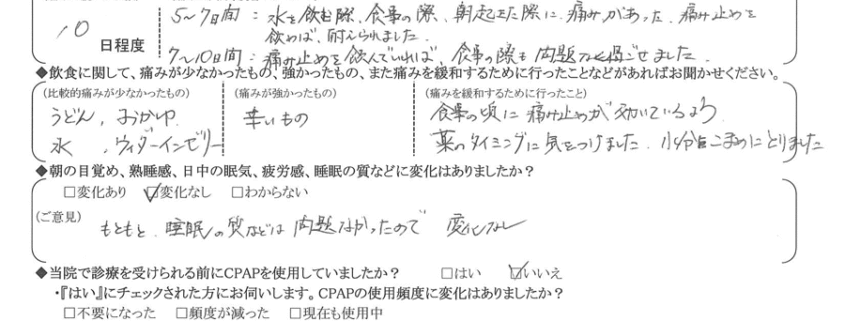 10
日程度
5〜7日間：水を飲む際、食事の際、朝起きた際に痛みがあった。痛み止めを
飲めば、耐えられました。
7〜10日間：痛み止めを飲んでいれば、食事の際も問題なく過ごせました。
◆飲食に関して、痛みが少なかったもの、強かったもの、また痛みを緩和するために行ったことなどがあればお聞かせください。
(比較的痛みが少なかったもの)
うどん、おかゆ
水、ウィダーインゼリー
(痛みが強かったもの)
辛いもの
(痛みを緩和するために行ったこと)
食事の頃に痛み止めが効いているよう
薬のタイミングに気をつけました。水分はこまめにとりました
◆朝の目覚め、熟睡感、日中の眠気、疲労感、睡眠の質などに変化はありましたか？
□変化あり ☑変化なし □わからない
(ご意見)
もともと、睡眠の質などは問題なかったので 変化なし
◆当院で診療を受けられる前にCPAPを使用していましたか？ □はい ☑いいえ
・『はい』にチェックされた方にお伺いします。CPAPの使用頻度に変化はありましたか？
□不要になった □頻度が減った □現在も使用中